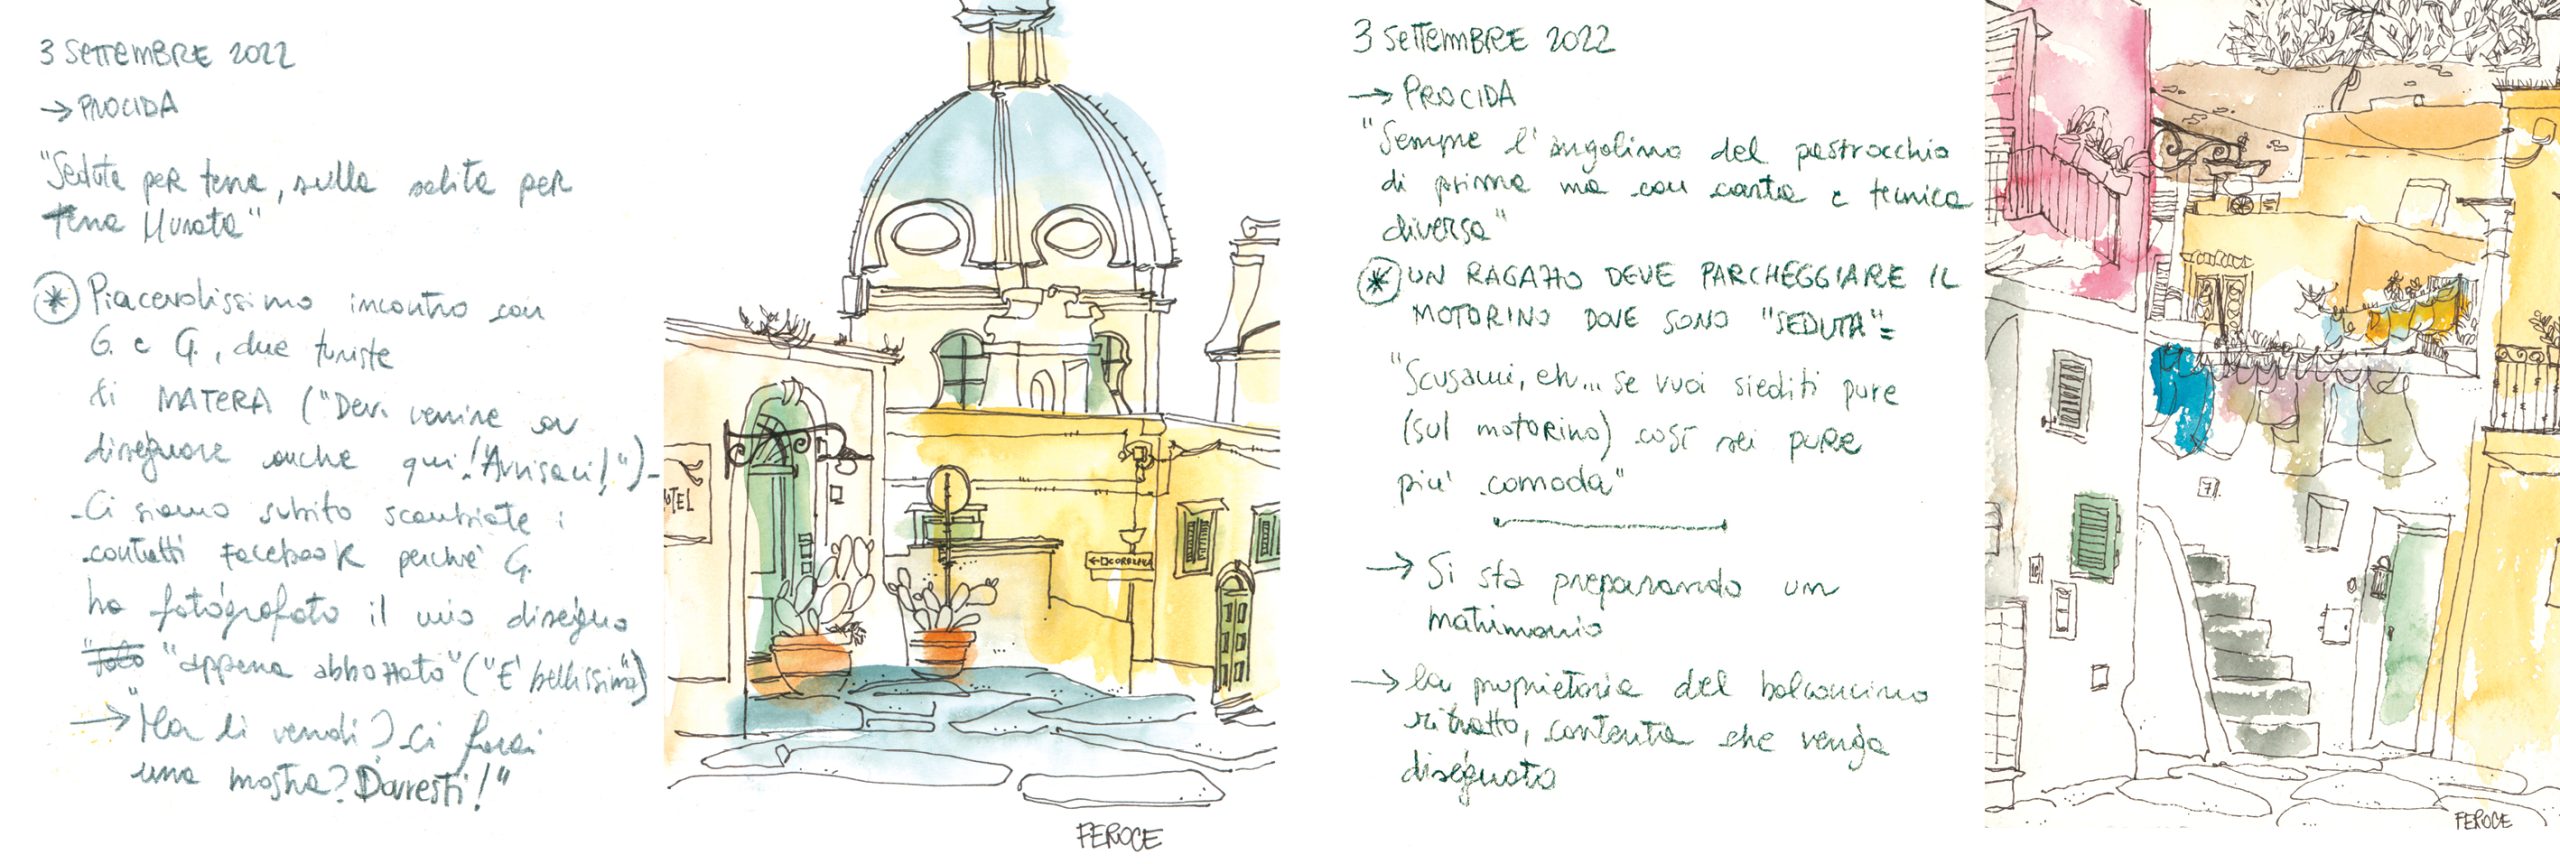 3 SETTEMBRE 2022
→ PROCIDA
"Seduta per terra, sulla salita per
Terra Murata"
* Piacevolissimo incontro con
G. e G., due turiste
di MATERA ("Devi venire a
disegnare anche qui! Avvisaci!")-
-Ci siamo subito scambiate i
contatti Facebook perchè G.
ha fotografato il mio disegno
"appena abbozzato" ("E' bellissimo")
→ "Ma li vendi? Ci farai
una mostra? Dovresti!"
HOTEL
← CORRICELLA
FEROCE
3 SETTEMBRE 2022
→ PROCIDA
"Sempre l'angolino del pastrocchio
di prima ma con carta e tecnica
diversa"
* UN RAGAZZO DEVE PARCHEGGIARE IL
MOTORINO DOVE SONO "SEDUTA"=
"Scusami, eh... se vuoi siediti pure
(sul motorino) così sei pure
più comoda"
→ Si sta preparando un
matrimonio
→ la proprietaria del balconcino
ritratto, contenta che venga
disegnato
7
FEROCE